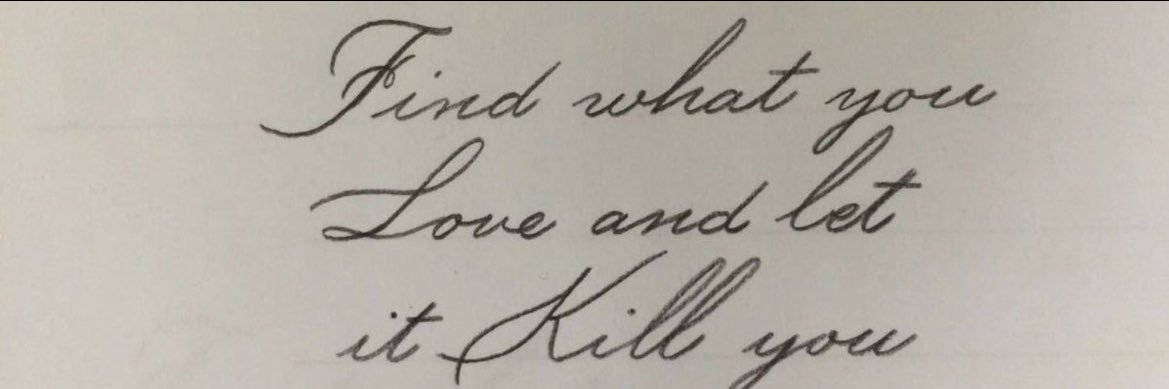 Find what you
Love and let
it Kill you